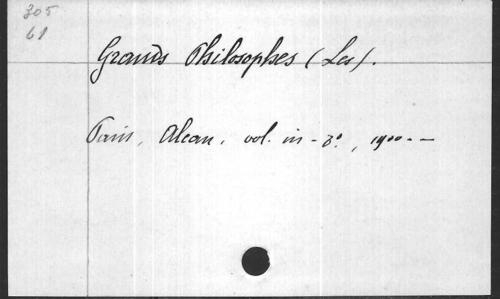 305
61
Grands Philosophes (Les).
Paris, Alcan, vol. in-8º, 1900--